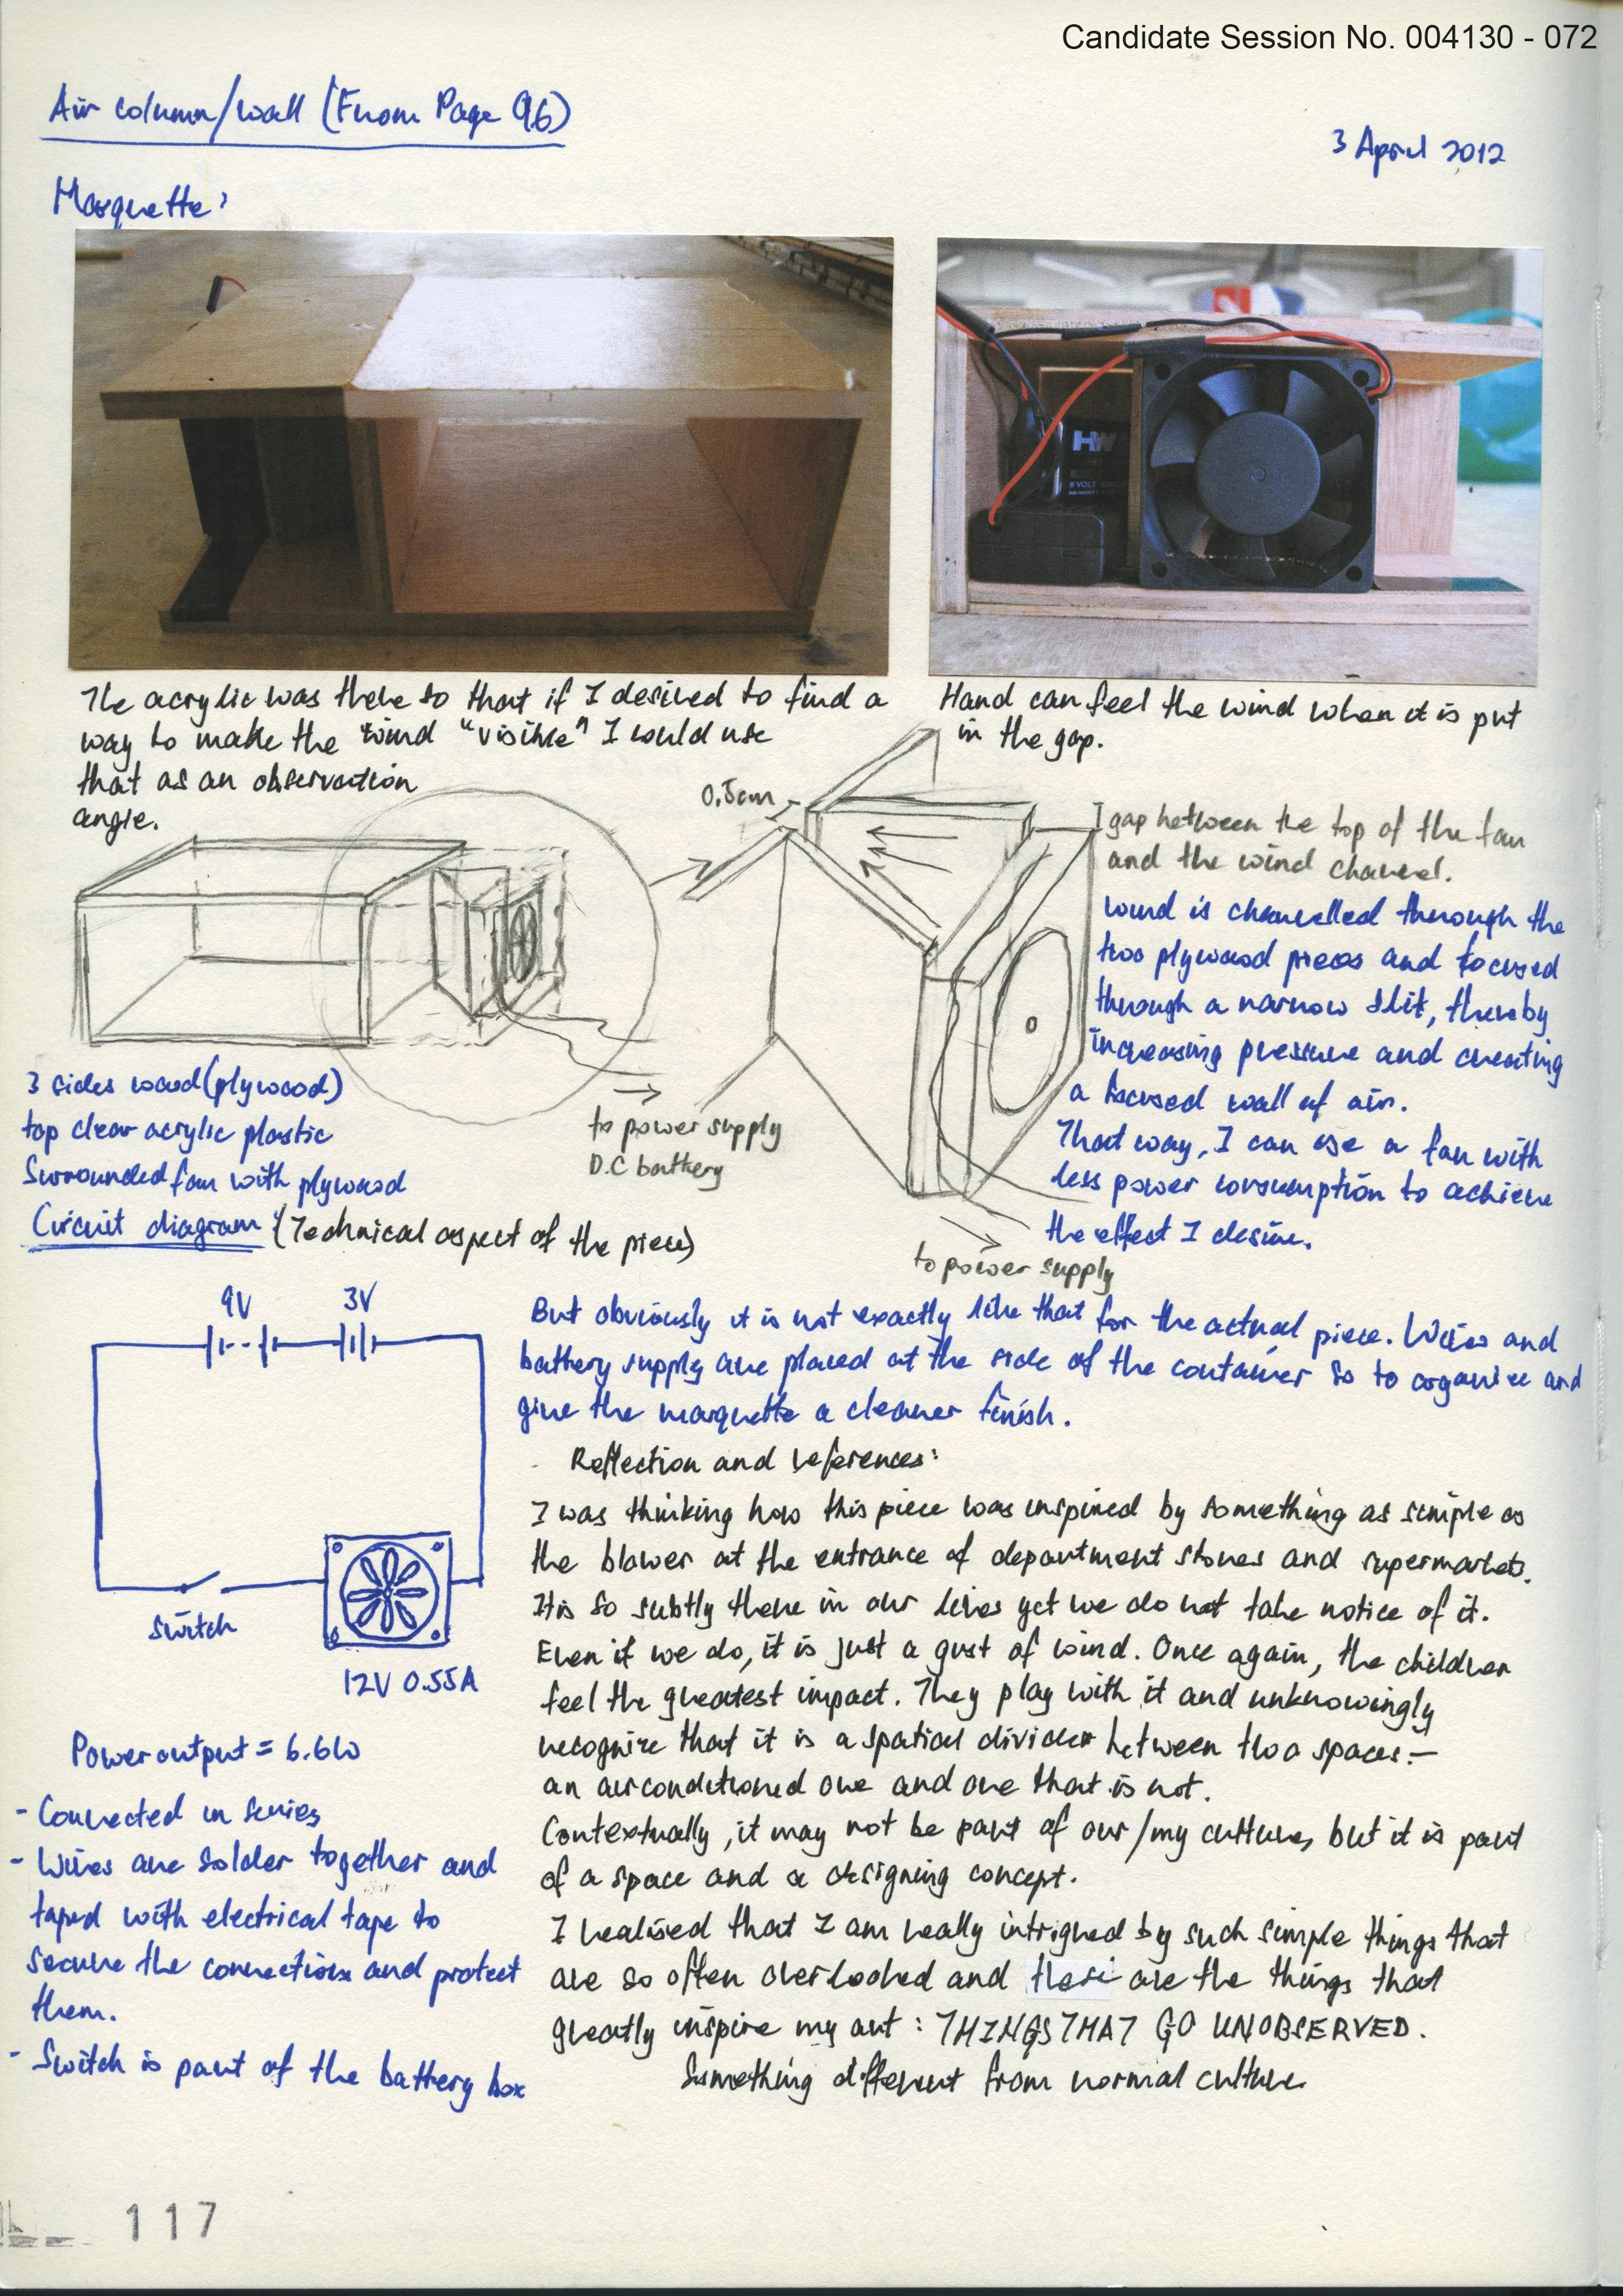 Candidate Session No. 004130 - 072
Air column/wall (From Page 96)
3 April 2012
Marquette:
HW
9 VOLT
The acrylic was there so that if I desired to find a
way to make the wind "visible" I would use
that as an observation
angle.
Hand can feel the wind when it is put
in the gap.
0.5cm
I gap between the top of the fan
and the wind channel.
wind is channelled through the
two plywood pieces and focused
through a narrow slit, thereby
increasing pressure and creating
a focused wall of air.
That way, I can use a fan with
less power consumption to achieve
the effect I desire.
to power supply
D.C battery
to power supply
3 sides wood (plywood)
top clear acrylic plastic
Surrounded fan with plywood
Circuit diagram: (Technical aspect of the piece)
9V
3V
switch
12V 0.55A
Power output = 6.6W
- Connected in series
- Wires are solder together and
taped with electrical tape to
secure the connections and protect
them.
- Switch is part of the battery box
But obviously it is not exactly like that for the actual piece. Wires and
battery supply are placed at the side of the container so to organize and
give the marquette a cleaner finish.
Reflection and references:
I was thinking how this piece was inspired by something as simple as
the blower at the entrance of department stores and supermarkets.
It is so subtly there in our lives yet we do not take notice of it.
Even if we do, it is just a gust of wind. Once again, the children
feel the greatest impact. They play with it and unknowingly
recognize that it is a spatial divider between two spaces –
an airconditioned one and one that is not.
Contextually, it may not be part of our/my culture, but it is part
of a space and a designing concept.
I realised that I am really intrigued by such simple things that
are so often overlooked and these are the things that
greatly inspire my art : THINGS THAT GO UNOBSERVED.
Something different from normal culture.
117